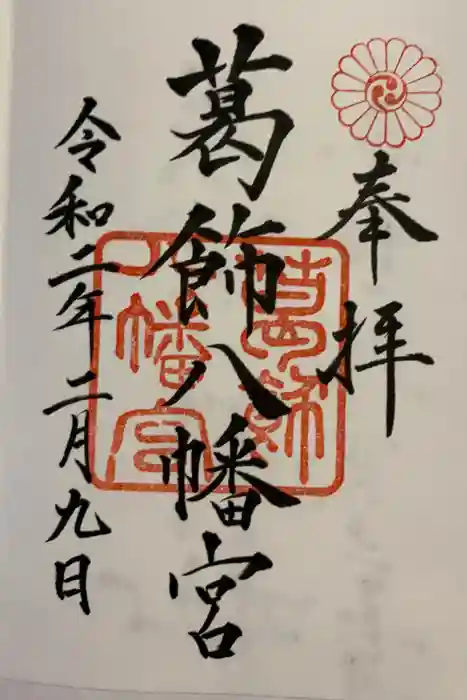 奉拝
葛飾八幡宮
令和二年二月九日
葛飾
八幡宮